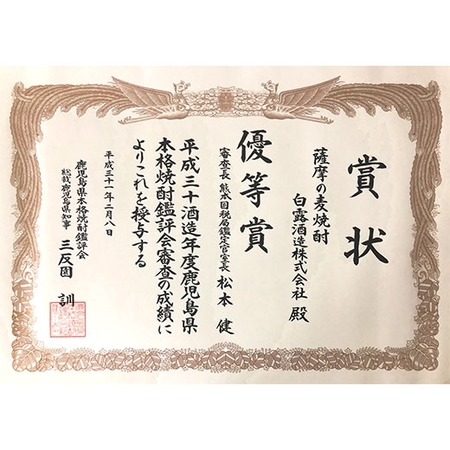 賞状
薩摩の麦焼酎
白露酒造株式会社 殿
優等賞
審査長 熊本国税局鑑定官室長 松本 健
平成三十酒造年度鹿児島県
本格焼酎鑑評会審査の成績に
よりこれを授与する
平成三十一年二月八日
鹿児島県本格焼酎鑑評会
総裁鹿児島県知事 三反園 訓